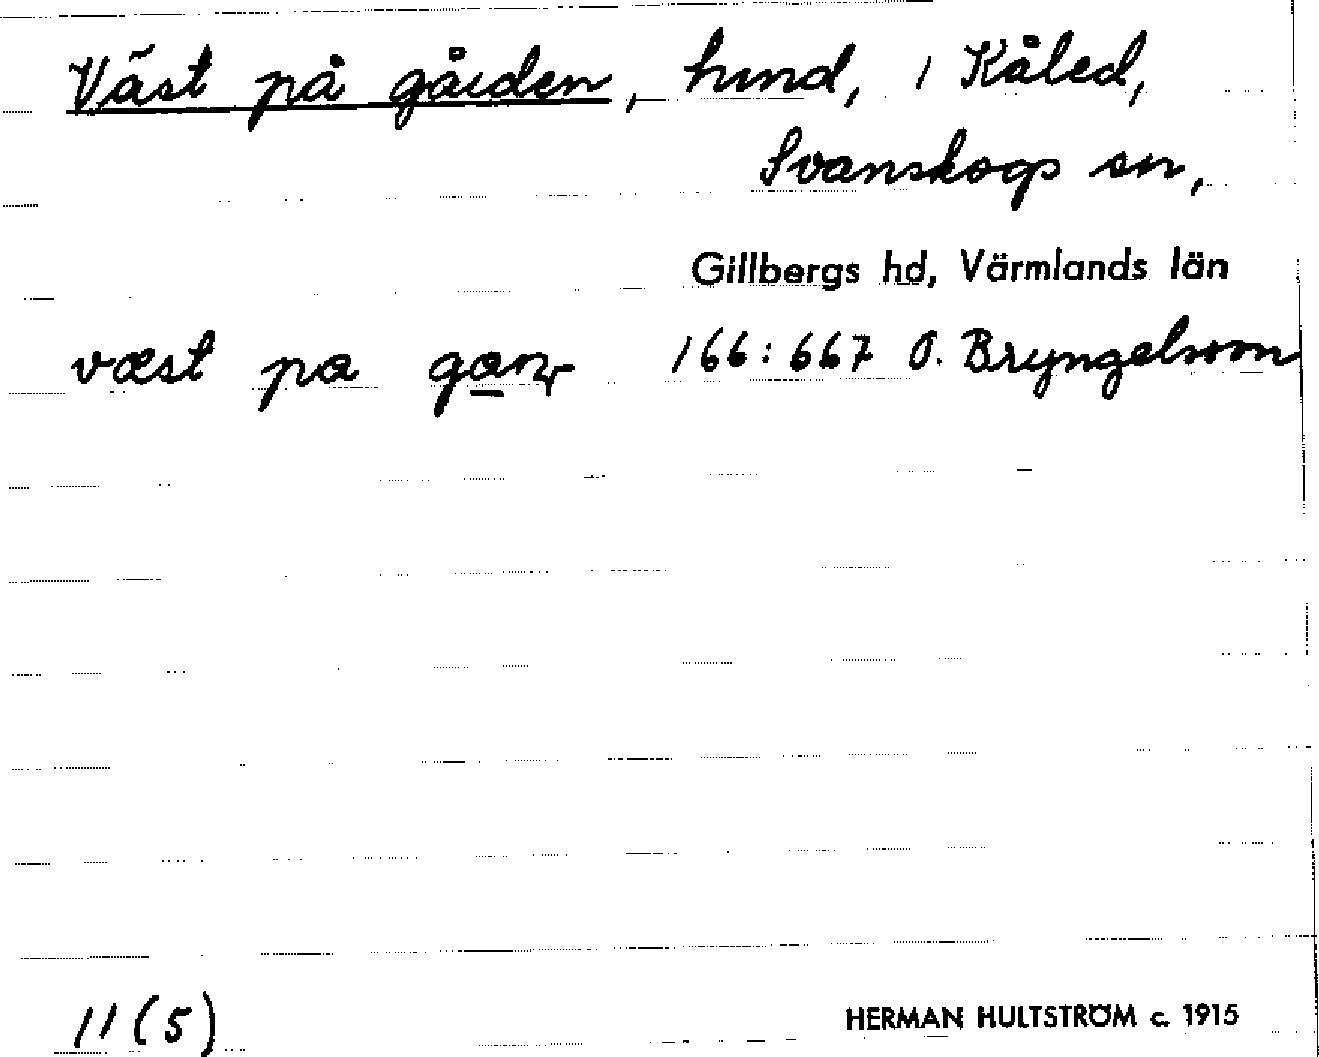 Väst på gården, hmd, i Kåled,
Svanskogs sn,
Gillbergs hd, Värmlands län
væst pa gan 166:667 O. Bryngelsson
11(5) HERMAN HULTSTRÖM c. 1915